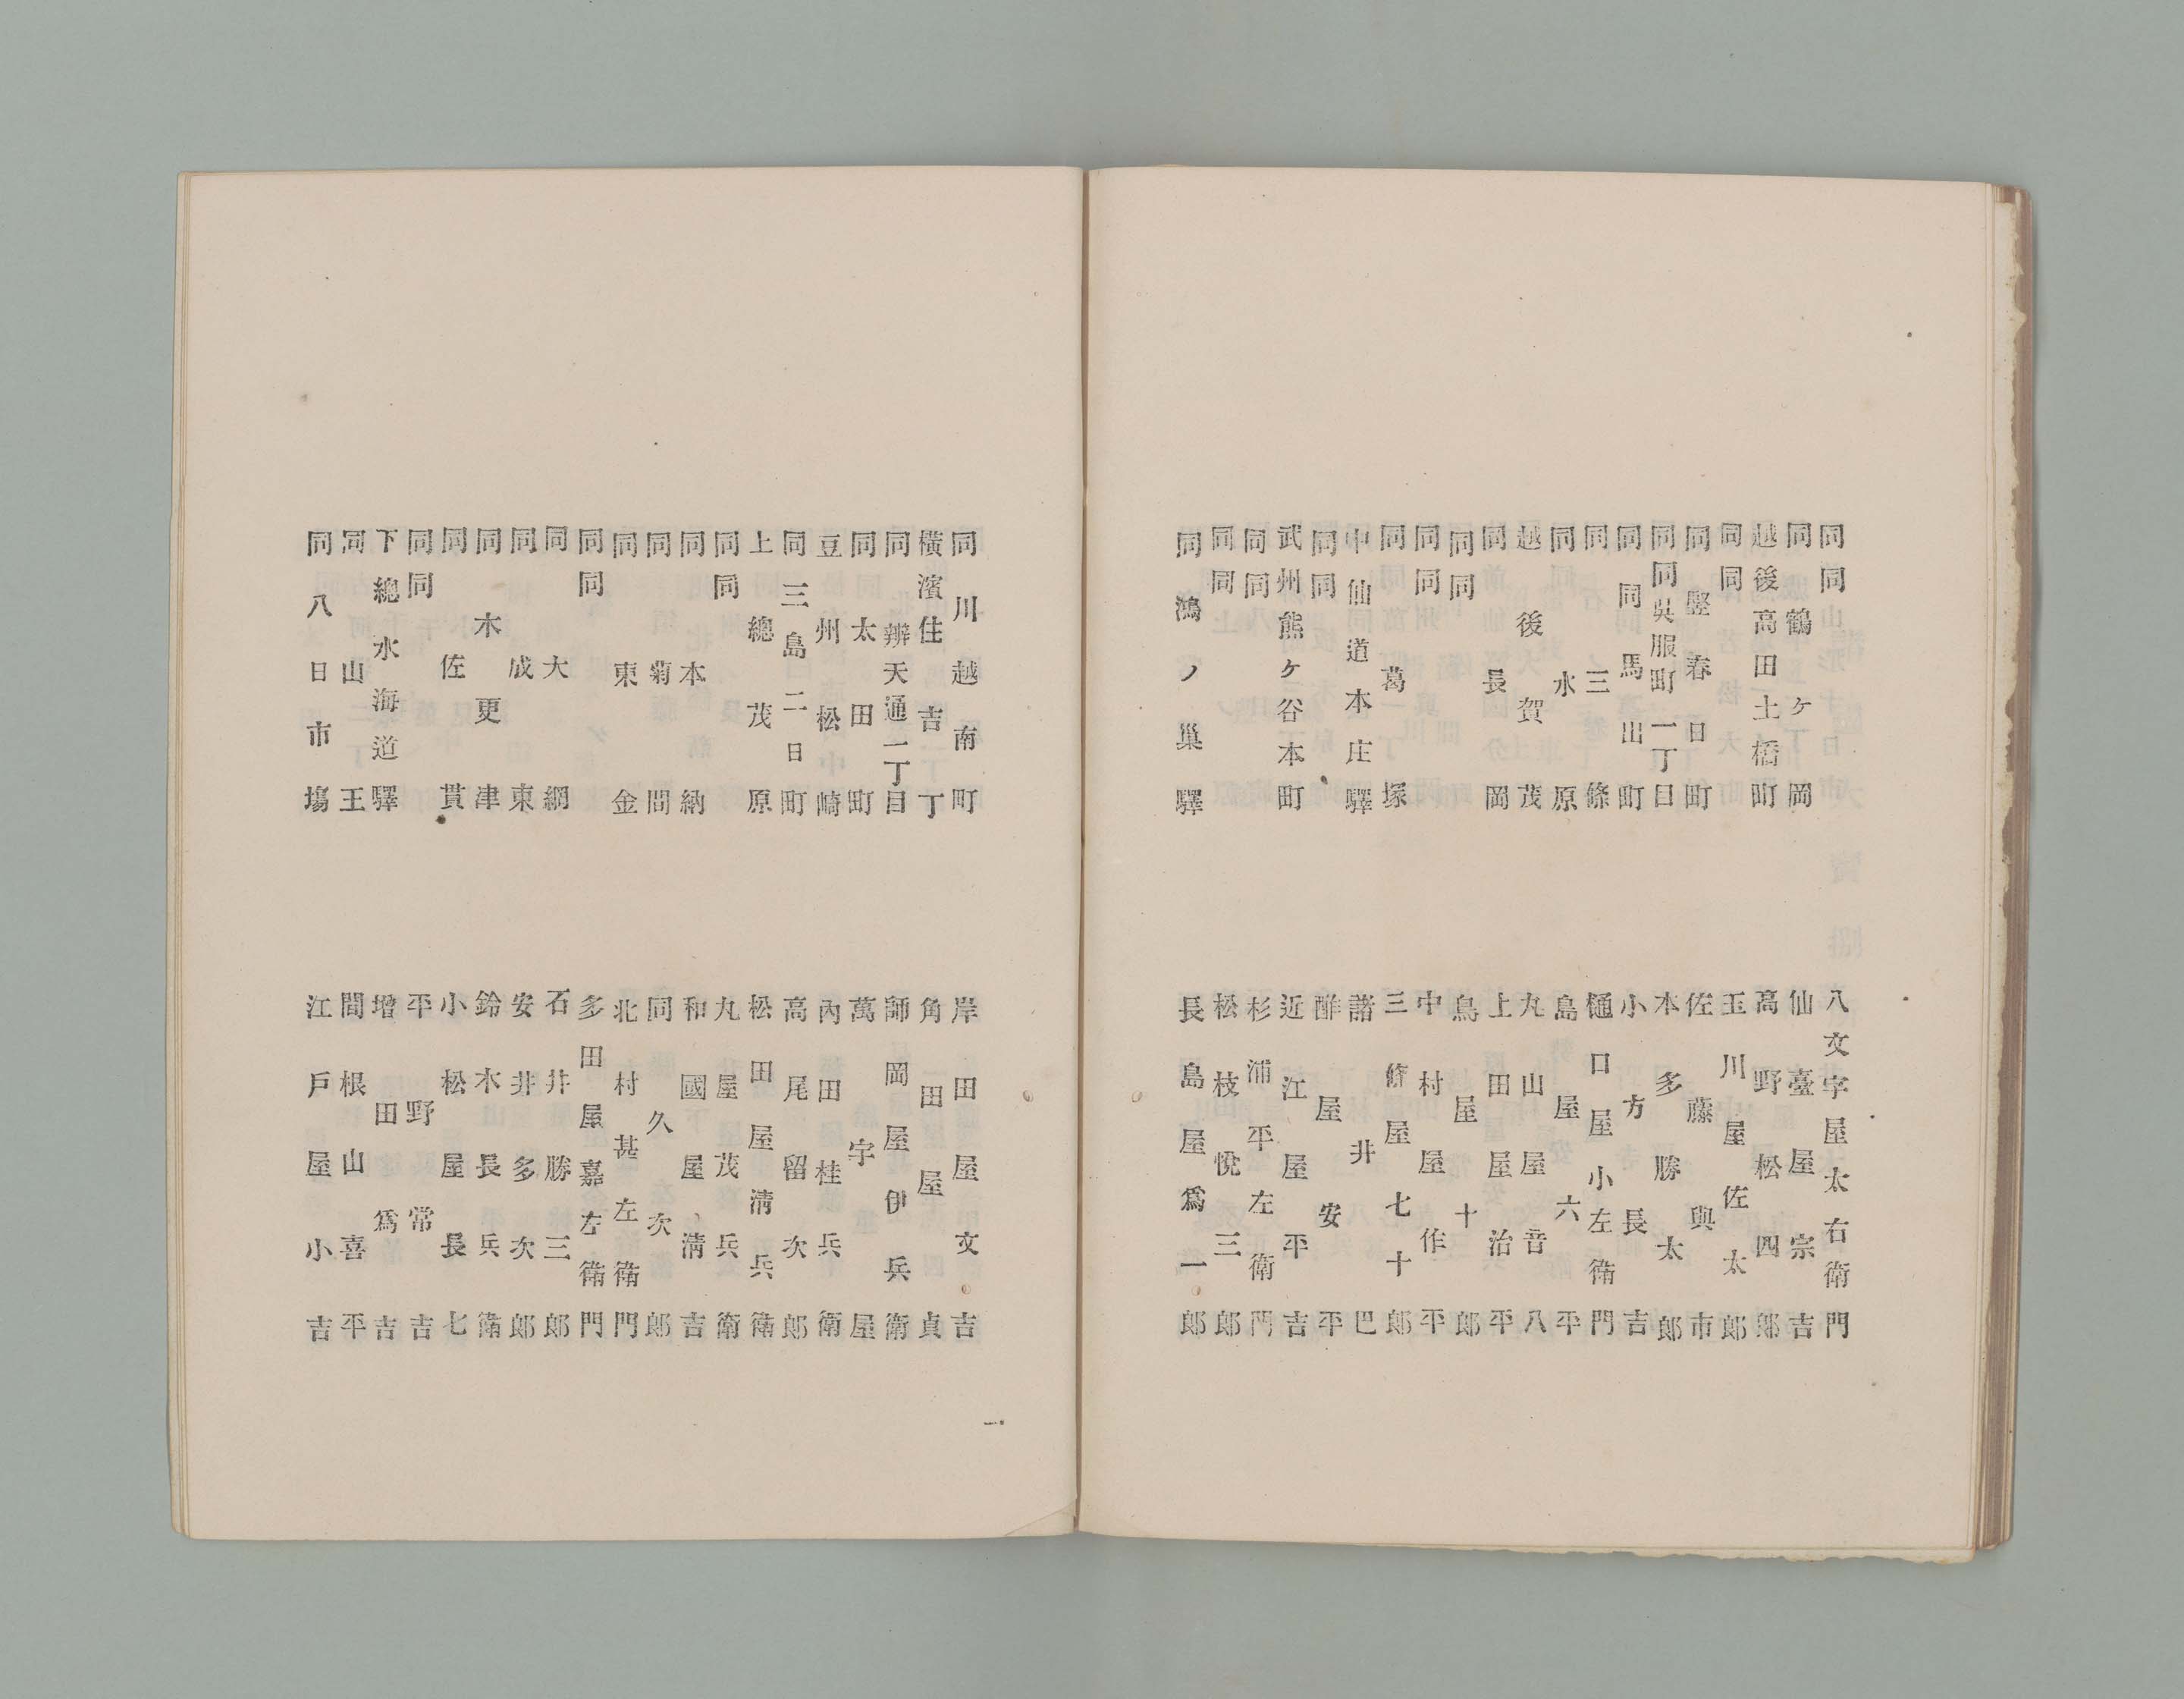 同同　八文字屋太右衛門
同鶴ヶ岡　仙臺屋宗吉
越後高田土橋町　高野松四郎
同同　玉川屋佐太郎
同竪春日町　佐藤與市
同同呉服町一丁目　本多勝太郎
同同馬出町　小方長吉
同三條　樋口屋小左衛門
同水原　島屋六平
越後賀茂　丸山屋音八
同長岡　上田屋治平
同同　鳥屋十郎
同同　中村屋作平
同葛塚　三條屋七十郎
中仙道本庄驛　諸井巴
同同　酢屋安平
武州熊ヶ谷本町　近江屋平吉
同同　杉浦平左衛門
同同　松枝悅三郎
同鴻ノ巢驛　長島屋爲一郎
同川越南町　岸田屋文吉
橫濱住吉丁　角田屋貞
同辨天通一丁目　師岡屋伊兵衛
同太田町　萬字屋
豆州松崎　內田桂兵衛
同三島二日町　高尾留次郎
上總茂原　松田屋淸兵衛
同同　丸屋茂兵衛
同本納　和國屋淸吉
同菊間　同久次郎
同東金　北村甚左衛門
同同　多田屋嘉左衛門
同大網　石井勝三郎
同成東　安井多次郎
同木更津　鈴木長兵衛
同佐貫　小松屋長七
同同　平野常吉
下總水海道驛　增田爲吉
同山王　間根山喜平
同八日市場　江戶屋小吉